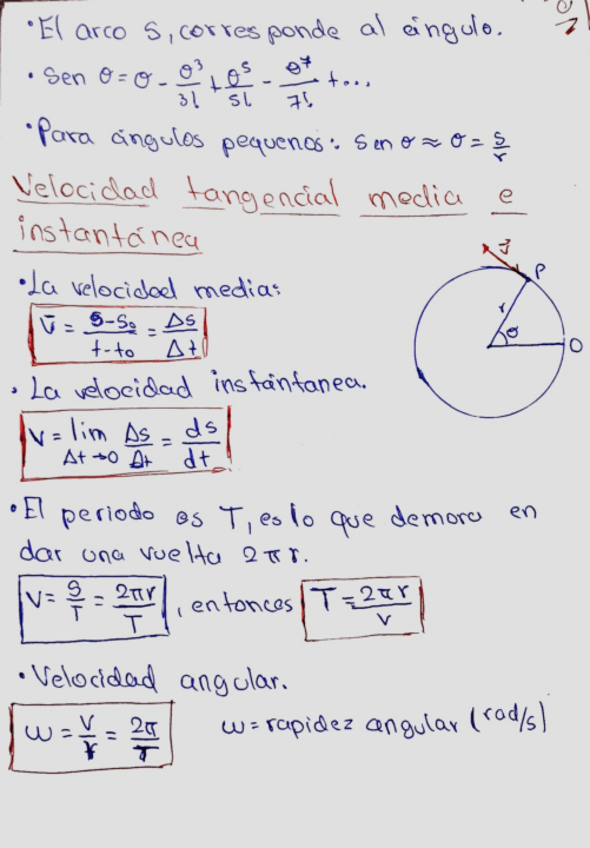 •El arco s, corresponde al ángulo.
•Sen θ = θ - θ³/3! + θ⁵/5! - θ⁷/7! + ...
•Para ángulos pequenos: sen θ ≈ θ = s/r
Velocidad tangencial media e
instantánea
•La velocidad media:
v̄ = s-s₀/t-t₀ = Δs/Δt
v
P
r
θ
O
• La velocidad instantanea.
v = lim Δt→0 Δs/Δt = ds/dt
•El periodo es T, es lo que demora en
dar una vuelta 2πr.
V = S/T = 2πr/T , entonces T = 2πr/v
•Velocidad angular.
ω = v/r = 2π/T ω = rapidez angular (rad/s)